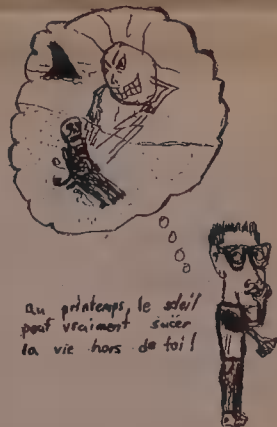 Au printemps, le soleil
peut vraiment sucer
la vie hors de toi!